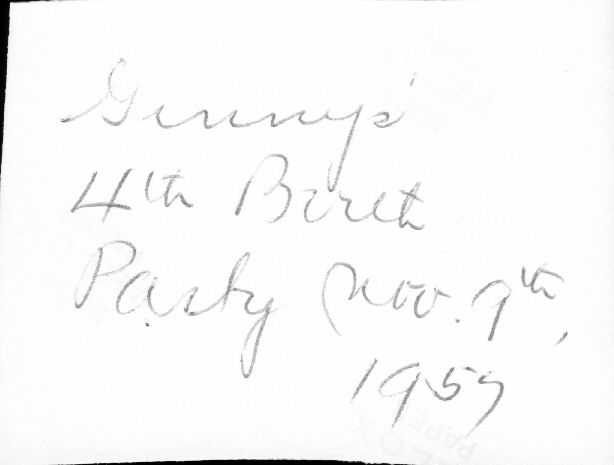 Ginnys'
4th Birth
Party Nov. 9th,
1957